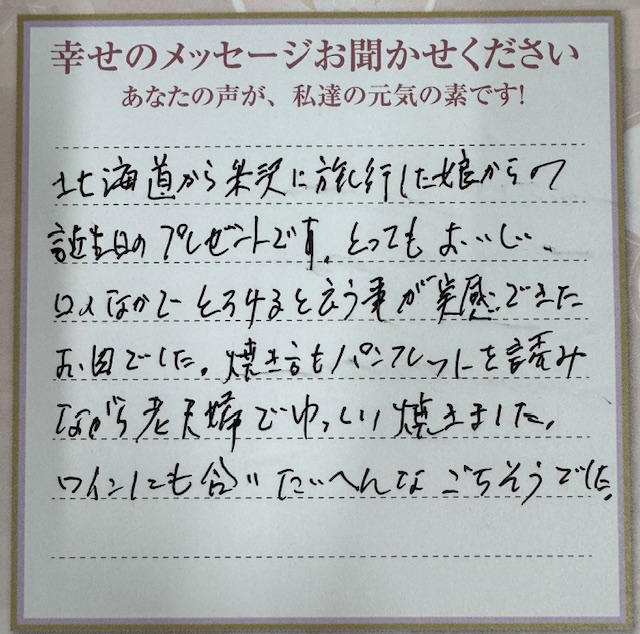 幸せのメッセージお聞かせください
あなたの声が、私達の元気の素です!
北海道から米沢に旅行した娘からの
誕生日のプレゼントです。とってもおいしい、
口のなかでとろけると云う事が実感できた
お肉でした。焼き方もパンフレットを読み
ながら老夫婦でゆっくり焼きました。
ワインにも合いたいへんなごちそうでした。